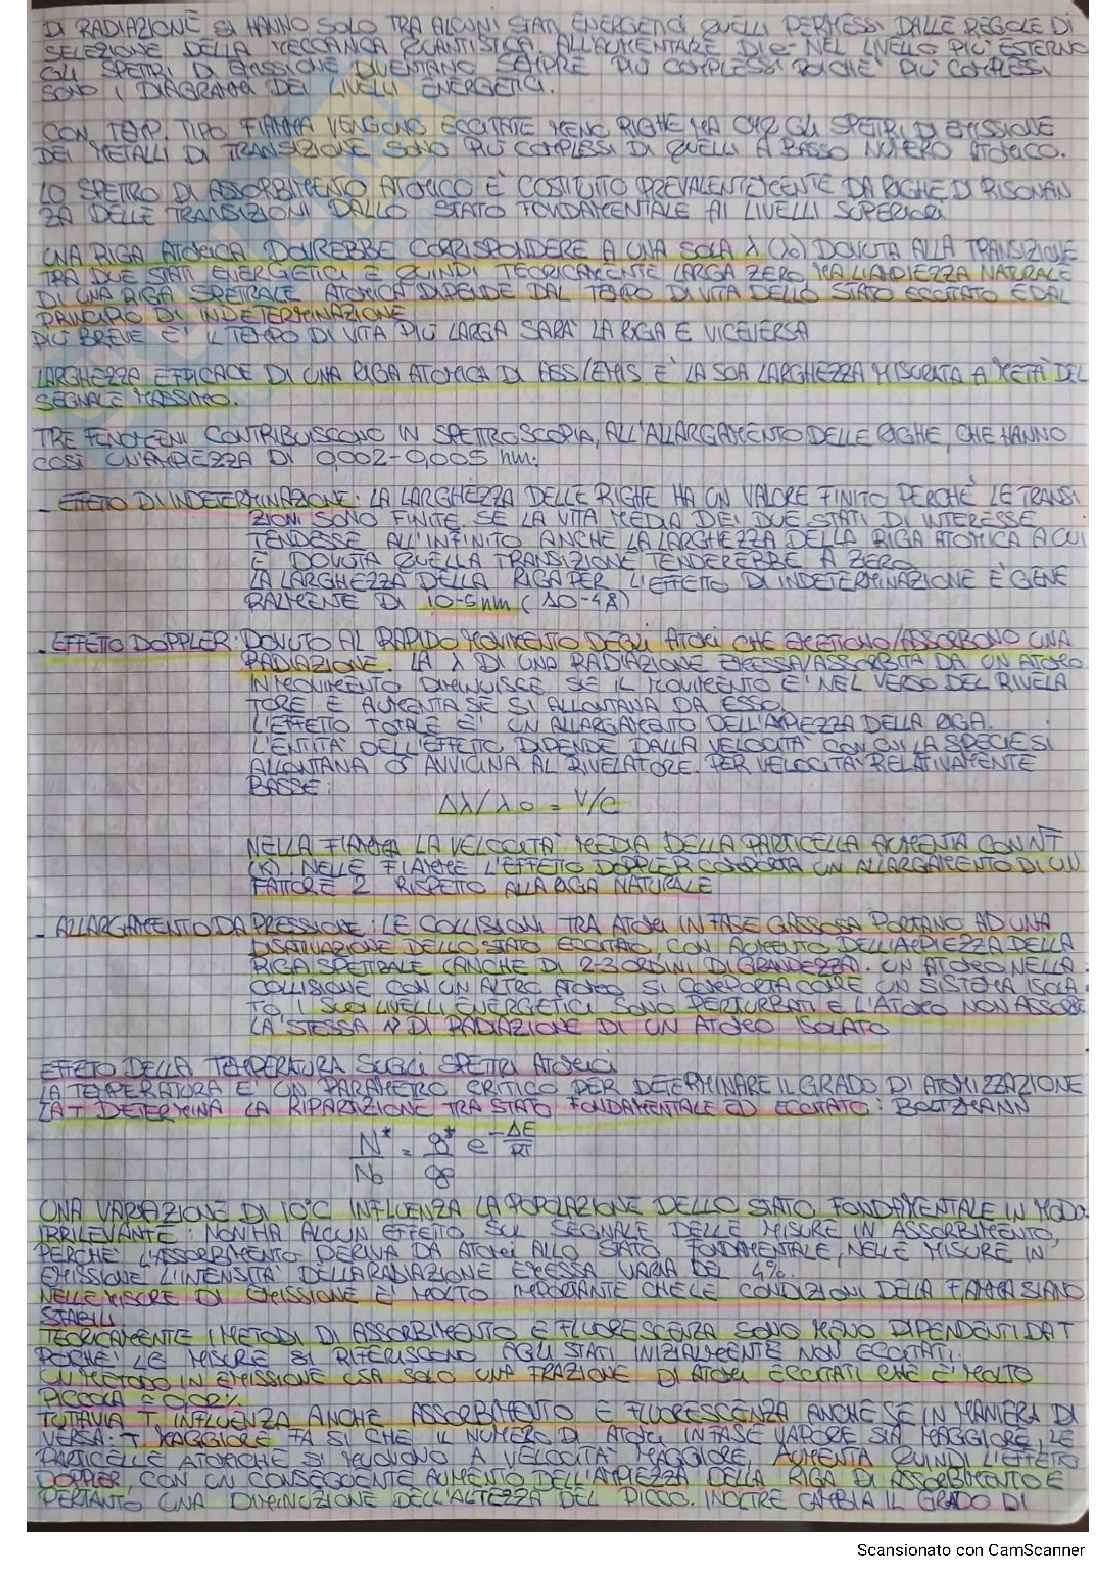 DI RADIAZIONE SI HANNO SOLO TRA ALCUNI STATI ENERGETICI QUELLI PERMESSI DALLE REGOLE DI
SELEZIONE DELLA MECCANICA QUANTISTICA. ALL'AUMENTARE DI e- NEL LIVELLO PIU' ESTERNO
GLI SPETTRI DI EMISSIONE DIVENTANO SEMPRE PIU' COMPLESSI POICHE' PIU' COMPLESSI
SONO I DIAGRAMMI DEI LIVELLI ENERGETICI.
CON TEMP. TIPO FIAMMA VENGONO ECCITATE MENO RIGHE MA CMQ GLI SPETTRI DI EMISSIONE
DEI METALLI DI TRANSIZIONE SONO PIU' COMPLESSI DI QUELLI A BASSO NUMERO ATOMICO.
LO SPETTRO DI ASSORBIMENTO ATOMICO E' COSTITUITO PREVALENTEMENTE DA RIGHE DI RISONAN
ZA DELLE TRANSIZIONI DALLO STATO FONDAMENTALE AI LIVELLI SUPERIORI
UNA RIGA ATOMICA DOVREBBE CORRISPONDERE A UNA SOLA λ (λ0) DOVUTA ALLA TRANSIZIONE
TRA DUE STATI ENERGETICI E QUINDI TEORICAMENTE LARGA ZERO MA L'AMPIEZZA NATURALE
DI UNA RIGA SPETTRALE ATOMICA DIPENDE DAL TEMPO DI VITA DELLO STATO ECCITATO E DAL
PRINCIPIO DI INDETERMINAZIONE
PIU' BREVE E' IL TEMPO DI VITA PIU' LARGA SARA' LA RIGA E VICEVERSA
LARGHEZZA EFFICACE DI UNA RIGA ATOMICA DI ASS/EMIS E' LA SUA LARGHEZZA MISURATA A META' DEL
SEGNALE MASSIMO.
TRE FENOMENI CONTRIBUISCONO IN SPETTROSCOPIA, ALL'ALLARGAMENTO DELLE RIGHE, CHE HANNO
COSI' UN'AMPIEZZA DI 0,002-0,005 nm:
- EFFETTO DI INDETERMINAZIONE: LA LARGHEZZA DELLE RIGHE HA UN VALORE FINITO PERCHE' LE TRANSI
ZIONI SONO FINITE. SE LA VITA MEDIA DEI DUE STATI DI INTERESSE
TENDESSE ALL'INFINITO ANCHE LA LARGHEZZA DELLA RIGA ATOMICA A CUI
E' DOVUTA QUELLA TRANSIZIONE TENDEREBBE A ZERO
LA LARGHEZZA DELLA RIGA PER L'EFFETTO DI INDETERMINAZIONE E' GENE
RALMENTE DI 10-5 nm (10-4 Å)
- EFFETTO DOPPLER: DOVUTO AL RAPIDO MOVIMENTO DEGLI ATOMI CHE EMETTONO/ASSORBONO UNA
RADIAZIONE. LA λ DI UNA RADIAZIONE EMESSA/ASSORBITA DA UN ATOMO
IN MOVIMENTO DIMINUISCE SE IL MOVIMENTO E' NEL VERSO DEL RIVELA
TORE E AUMENTA SE SI ALLONTANA DA ESSO.
L'EFFETTO TOTALE E' UN ALLARGAMENTO DELL'AMPIEZZA DELLA RIGA.
L'ENTITA' DELL'EFFETTO DIPENDE DALLA VELOCITA' CON CUI LA SPECIE SI
ALLONTANA O AVVICINA AL RIVELATORE. PER VELOCITA' RELATIVAMENTE
BASSE:
Δλ/λ0 = V/C
NELLA FIAMMA LA VELOCITA' MEDIA DELLA PARTICELLA AUMENTA CON √T
(K). NELLE FIAMME L'EFFETTO DOPPLER COMPORTA UN ALLARGAMENTO DI UN
FATTORE 2 RISPETTO ALLA RIGA NATURALE
- ALLARGAMENTO DA PRESSIONE: LE COLLISIONI TRA ATOMI IN FASE GASSOSA PORTANO AD UNA
DISATTIVAZIONE DELLO STATO ECCITATO, CON AUMENTO DELL'AMPIEZZA DELLA
RIGA SPETTRALE (ANCHE DI 2-3 ORDINI DI GRANDEZZA). UN ATOMO NELLA
COLLISIONE CON UN ALTRO ATOMO SI COMPORTA COME UN SISTEMA ISOLA
TO I SUOI LIVELLI ENERGETICI SONO PERTURBATI E L'ATOMO NON ASSORBE
LA STESSA ν DI RADIAZIONE DI UN ATOMO ISOLATO
EFFETTO DELLA TEMPERATURA SUGLI SPETTRI ATOMICI
LA TEMPERATURA E' UN PARAMETRO CRITICO PER DETERMINARE IL GRADO DI ATOMIZZAZIONE
LA T DETERMINA LA RIPARTIZIONE TRA STATO FONDAMENTALE ED ECCITATO: BOLTZMANN
N*/N0 = g*/g0 e^-ΔE/RT
UNA VARIAZIONE DI 10°C INFLUENZA LA POPOLAZIONE DELLO STATO FONDAMENTALE IN MODO
IRRILEVANTE: NON HA ALCUN EFFETTO SUL SEGNALE DELLE MISURE IN ASSORBIMENTO,
PERCHE' L'ASSORBIMENTO DERIVA DA ATOMI ALLO STATO FONDAMENTALE, NELLE MISURE IN
EMISSIONE L'INTENSITA' DELLA RADIAZIONE EMESSA VARIA DEL 4%.
NELLE MISURE DI EMISSIONE E' MOLTO IMPORTANTE CHE LE CONDIZIONI DELLA FIAMMA SIANO
STABILI
TEORICAMENTE I METODI DI ASSORBIMENTO E FLUORESCENZA SONO MENO DIPENDENTI DA T
POICHE' LE MISURE SI RIFERISCONO AGLI STATI INIZIALMENTE NON ECCITATI.
UN METODO IN EMISSIONE USA SOLO UNA FRAZIONE DI ATOMI ECCITATI CHE E' MOLTO
PICCOLA = 0,02%.
TUTTAVIA T INFLUENZA ANCHE ASSORBIMENTO E FLUORESCENZA ANCHE SE IN MANIERA DI
VERSA: T MAGGIORE FA SI CHE IL NUMERO DI ATOMI IN FASE VAPORE SIA MAGGIORE, LE
PARTICELLE ATOMICHE SI MUOVONO A VELOCITA' MAGGIORE, AUMENTA QUINDI L'EFFETTO
DOPPLER, CON UN CONSEGUENTE AUMENTO DELL'AMPIEZZA DELLA RIGA DI ASSORBIMENTO E
PERTANTO UNA DIMINUZIONE DELL'ALTEZZA DEL PICCO. INOLTRE CAMBIA IL GRADO DI
Scansionato con CamScanner